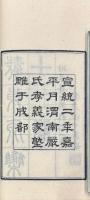 宣統二年嘉
平月渭南嚴
氏孝義家塾
雕于成都